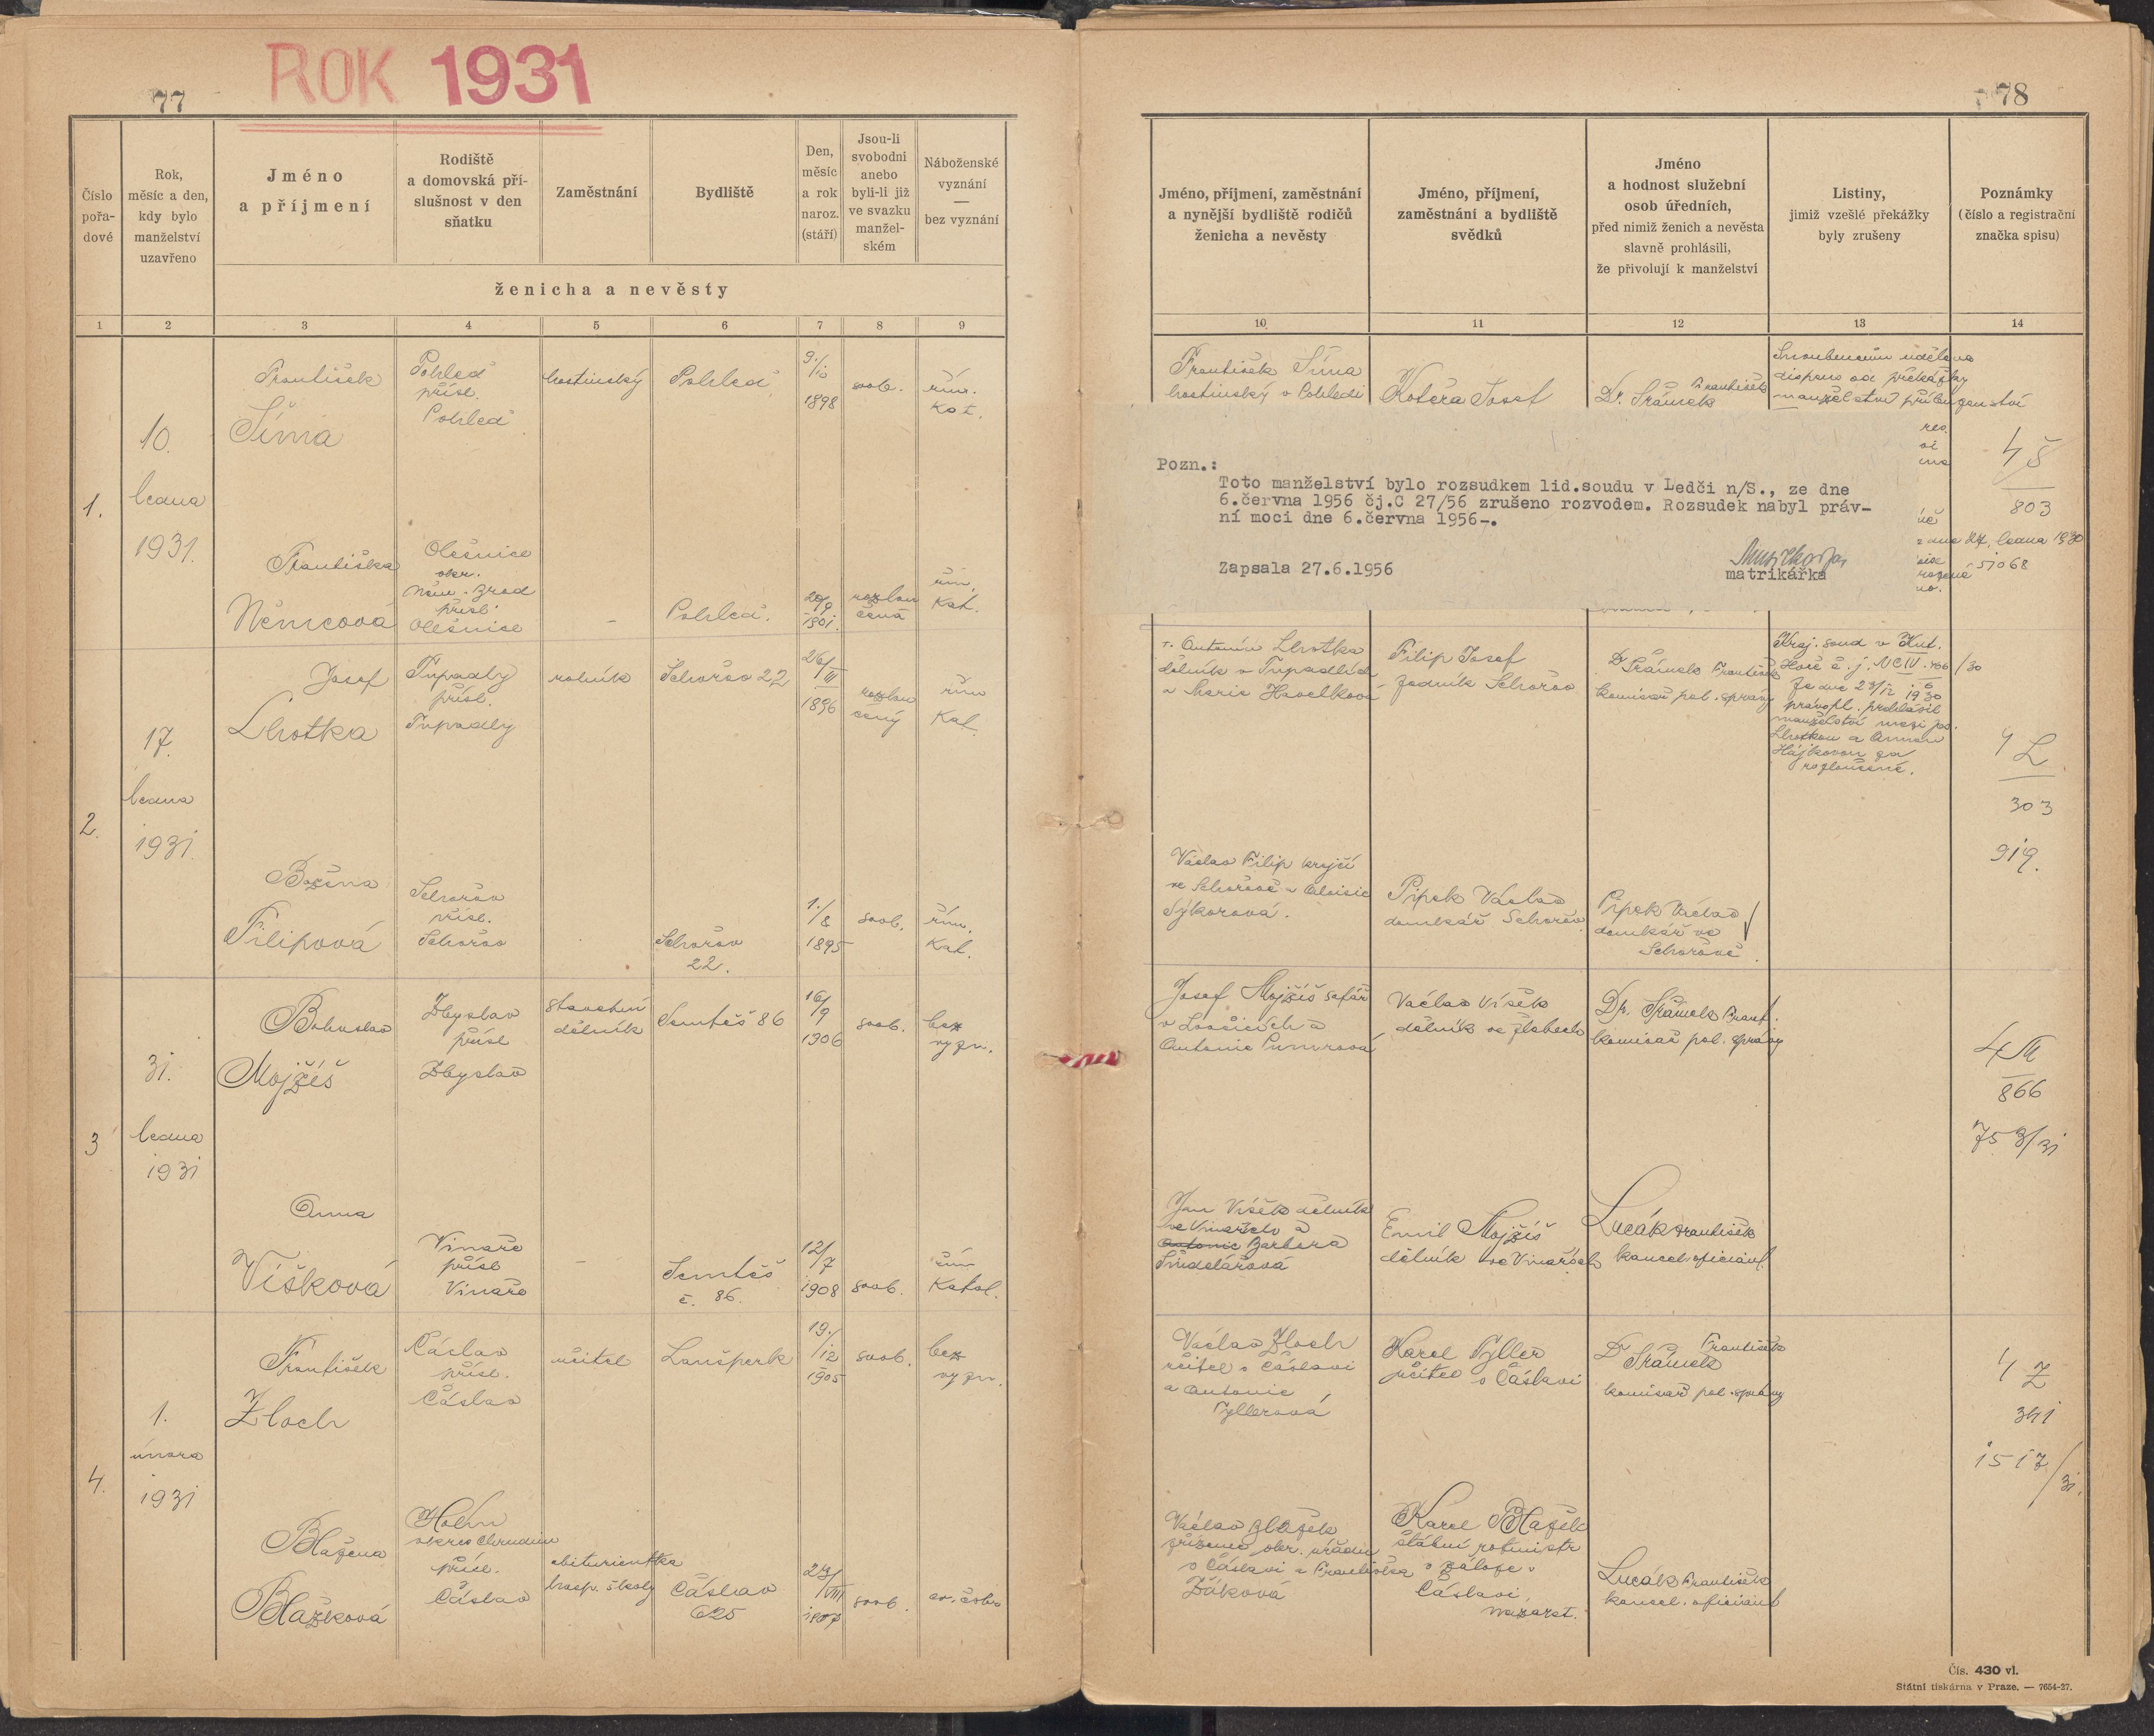 77
ROK 1931
Číslo pořa-
dové
Rok,
měsíc a den,
kdy bylo
manželství
uzavřeno
Jméno
a příjmení
Rodiště
a domovská pří-
slušnost v den
sňatku
Zaměstnání
Bydliště
Den,
měsíc
a rok
naroz.
(stáří)
Jsou-li
svobodni
anebo
byli-li již
ve svazku
manžel-
ském
Náboženské
vyznání
—
bez vyznání
ženicha a nevěsty
1 2 3 4 5 6 7 8 9
1.
10.
ledna
1931.
František
Šíma
Pohled
přísl.
Pohled
hostinský
Pohled
9./10
1898
svob.
řím.
kat.
Františka
Němcová
Olešnice
okr.
Něm. Brod
přísl.
Olešnice
-
Pohled.
20/9
1901.
rozlou
čená
řím.
kat.
2.
17.
ledna
1931.
Josef
Lhotka
Tupadly
přísl.
Tupadly
rolník
Schořov 22
26/III
1896
rozlou
čený
řím
kat.
Božena
Filipová
Schořov
přísl.
Schořov
Schořov
22.
1./8
1895
svob.
řím.
kat.
3
31.
ledna
1931
Bohuslav
Mojžíš
Zbyslav
přísl
Zbyslav
stavební
dělník
Semtěš 86
16/9
1906
svob.
bez
vyzn.
Anna
Víšková
Vinaře
přísl
Vinaře
-
Semtěš
č. 86.
12/7
1908
svob.
řím
katol.
4.
1.
února
1931
František
Zloch
Čáslav
přísl.
Čáslav
učitel
Lanšperk
19./12
1905
svob.
bez
vyzn.
Blažena
Blažková
Holín
okres Chrudim
přísl.
Čáslav
abiturientka
hosp. školy
Čáslav
625
23/VIII
1907
svob.
78
Jméno, příjmení, zaměstnání
a nynější bydliště rodičů
ženicha a nevěsty
Jméno, příjmení,
zaměstnání a bydliště
svědků
Jméno
a hodnost služební
osob úředních,
před nimiž ženich a nevěsta
slavně prohlásili,
že přivolují k manželství
Listiny,
jimiž vzešlé překážky
byly zrušeny
Poznámky
(číslo a registrační
značka spisu)
10 11 12 13 14
František Šíma
hostinský v Pohledi
Kotěra Josef
Dr. Šrámek František
Snoubencům udělena
dispens od překážky
manželství příbuzenství
4 Š
803
ze dne 27. ledna 1930
51068
Pozn.:
Toto manželství bylo rozsudkem lid.soudu v Ledči n/S., ze dne
6.června 1956 čj.C 27/56 zrušeno rozvodem. Rozsudek nabyl práv-
ní moci dne 6.června 1956-.
Zapsala 27.6.1956
matrikářka
Antonín Lhotka
dělník v Tupadlích
a Marie Havelková
Filip Josef
zedník Schořov
Dr Šrámek František
komisař pol. správy
Kraj. soud v Kut.
Hoře č. j. Nc IV 406/30
ze dne 23/12 1930
pravopl. prohlásil
manželství mezi Jos.
Lhotkou a Annou
Hájkovou za
rozloučené.
4 L
303
919.
Václav Filip krejčí
ve Schořově a Aloisie
Sýkorová.
Pipek Václav
domkář Schořov
Pipek Václav
domkář ve
Schořově
Josef Mojžíš šafář
v Lovčicích a
Antonie
Václav Víšek
dělník ve Žlebech
Dr. Šrámek Frant.
komisař pol. správy
4 M
866
753/31
Jan Víšek dělník
ve Vinařích a
Antonie Barbora
Šindelářová
Emil Mojžíš
dělník ve Vinařích
Lucák František
kancel. oficiant
Václav Zloch
učitel v Čáslavi
a Antonie
Tyllerová
Karel Tyller
učitel v Čáslavi
Dr Šrámek František
komisař pol. správy
4 Z
341
1517/31.
Václav Blažek
zřízenec okr. úřadu
v Čáslavi a Františka
Žáková
Karel Blažek
štábní rotmistr
v záloze v
Čáslavi
Lucák František
kancel. oficiant
Čís. 430 vl.
Státní tiskárna v Praze. — 7654-27.